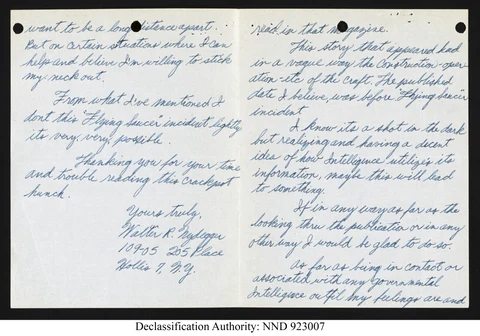 want to be a long distance apart.
But on Certain Stuations where I can
help and believe I'm willing to stick
my neck out.
From what I've mentioned I
dont this "Flying Saucer" incident lightly
its very, very, possible.
Thanking you for your time
and trouble reading this crackpot
hunch.
Yours truly,
Walter R.
109-05 205 Place
Hollis 7, N.Y.
read in that magazine.
This story that appeared had
in a vague way the Construction-oper-
ation-etc of the Craft. The published
date I believe, was before "Flying Saucer"
incident
I know its a shot in the dark
but realizing and having a decent
idea of how Intellegence utilizes its
information, maybe this will lead
to something.
If in any way as far as the
looking thru the publication or in any
other way I would be glad to do so.
As far as being in contact or
associated with any Governmental
Intellegence outfit my feelings are and
Declassification Authority: NND 923007